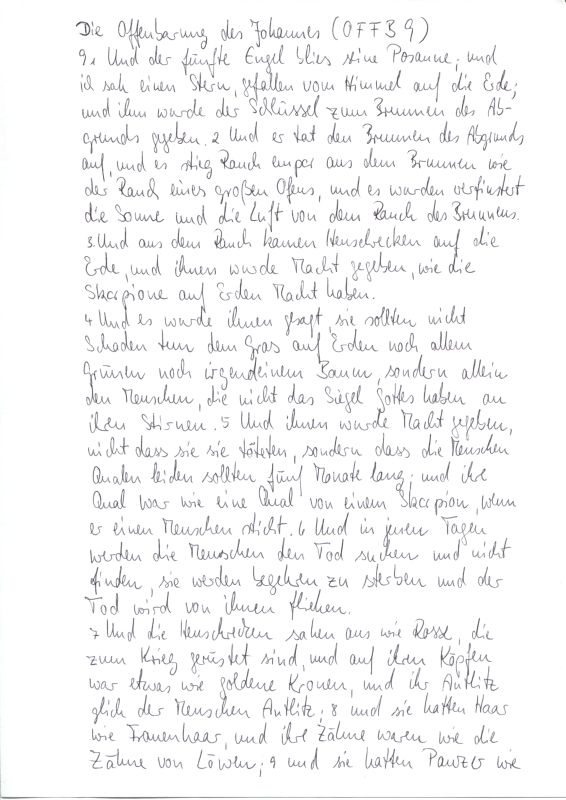 Die Offenbarung des Johannes (OFFB 9)
9 1 Und der fünfte Engel blies seine Posaune; und
ich sah einen Stern, gefallen vom Himmel auf die Erde;
und ihm wurde der Schlüssel zum Brunnen des Ab-
grunds gegeben. 2 Und er tat den Brunnen des Abgrunds
auf, und es stieg Rauch empor aus dem Brunnen wie
der Rauch eines großen Ofens, und es wurden verfinstert
die Sonne und die Luft von dem Rauch des Brunnens.
3 Und aus dem Rauch kamen Heuschrecken auf die
Erde, und ihnen wurde Macht gegeben, wie die
Skorpione auf Erden Macht haben.
4 Und es wurde ihnen gesagt, sie sollten nicht
Schaden tun dem Gras auf Erden noch allem
Grünen noch irgendeinem Baum, sondern allein
den Menschen, die nicht das Siegel Gottes haben an
ihren Stirnen. 5 Und ihnen wurde Macht gegeben,
nicht dass sie sie töteten, sondern dass die Menschen
Qualen leiden sollten fünf Monate lang; und ihre
Qual war wie eine Qual von einem Skorpion, wenn
er einen Menschen sticht. 6 Und in jenen Tagen
werden die Menschen den Tod suchen und nicht
finden, sie werden begehren zu sterben und der
Tod wird von ihnen fliehen.
7 Und die Heuschrecken sahen aus wie Rosse, die
zum Krieg gerüstet sind, und auf ihren Köpfen
war etwas wie goldene Kronen, und ihr Antlitz
glich der Menschen Antlitz; 8 und sie hatten Haar
wie Frauenhaar, und ihre Zähne waren wie die
Zähne von Löwen; 9 und sie hatten Panzer wie